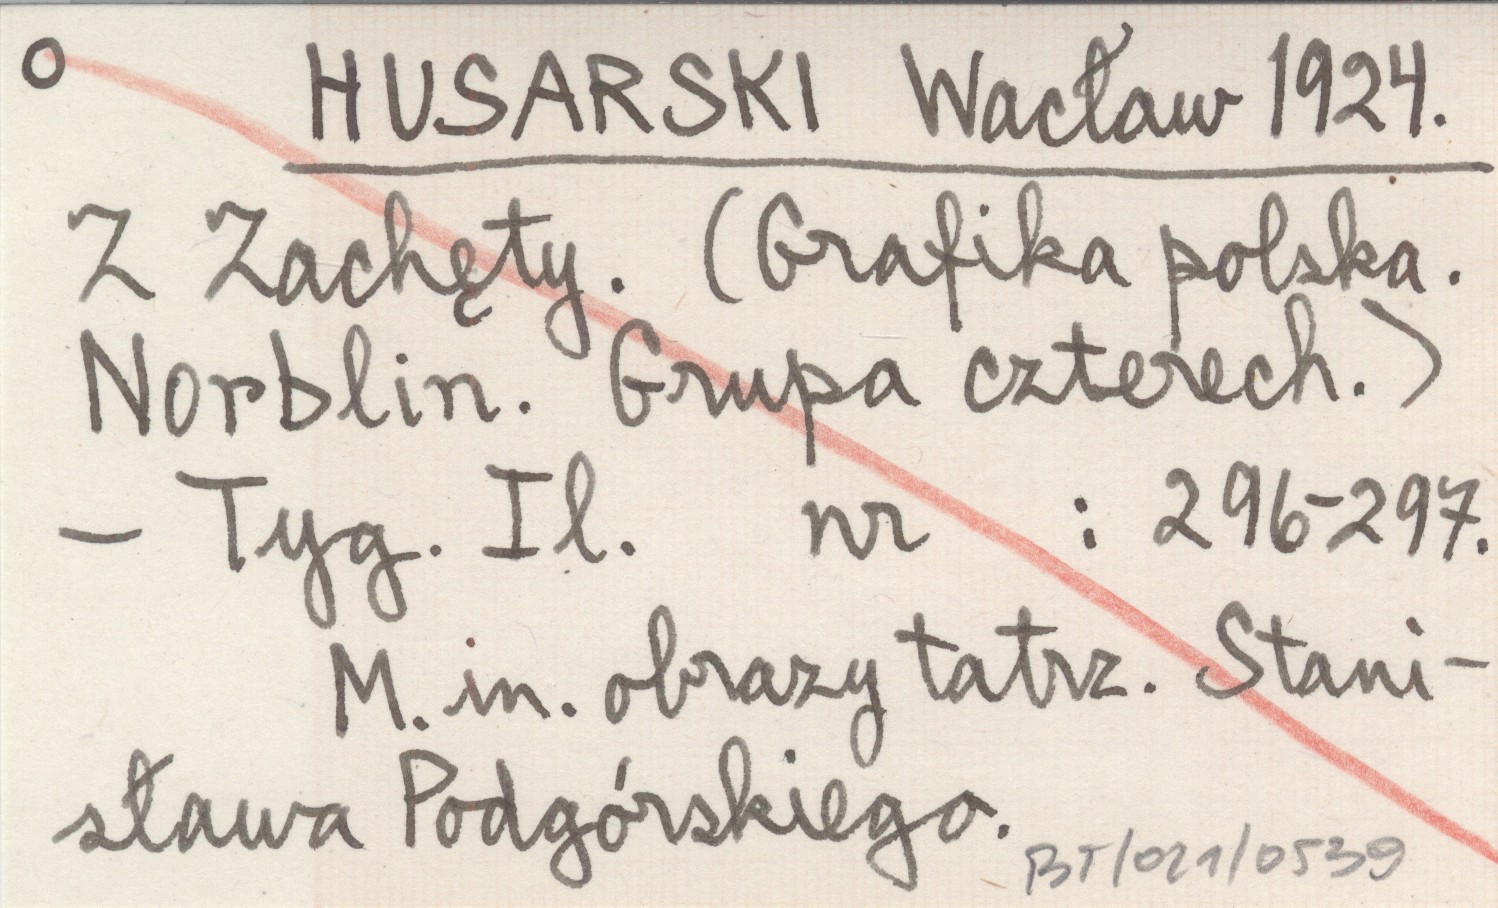 o HUSARSKI Wacław 1924.
Z Zachęty. (Grafika polska.
Norblin. Grupa czterech.)
– Tyg. Il. nr : 296-297.
M. in. obrazy tatrz. Stani-
sława Podgórskiego.
BT/021/0539